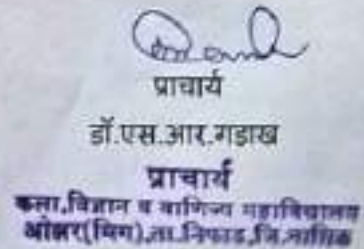 प्राचार्य
डॉ.एस.आर.गडाख
प्राचार्य
कला,विज्ञान व वाणिज्य महाविद्यालय
ओझर(मिग),ता.निफाड,जि.नाशिक